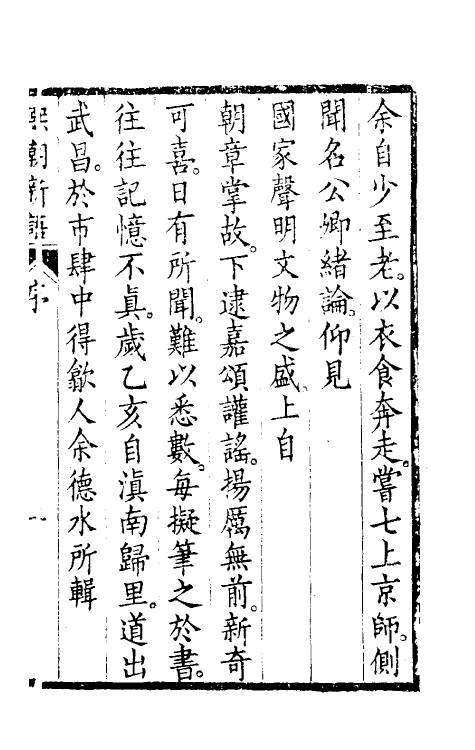 余自少至老。以衣食奔走。嘗七上京師。側
聞名公卿緒論。仰見
國家聲明文物之盛。上自
朝章掌故。下逮嘉頌讙謠。揚厲無前。新奇
可喜。日有所聞。難以悉數。每擬筆之於書。
往往記憶不眞。歲乙亥自滇南歸里。道出
武昌。於市肆中得歙人余德水所輯
熙朝新語 序 一